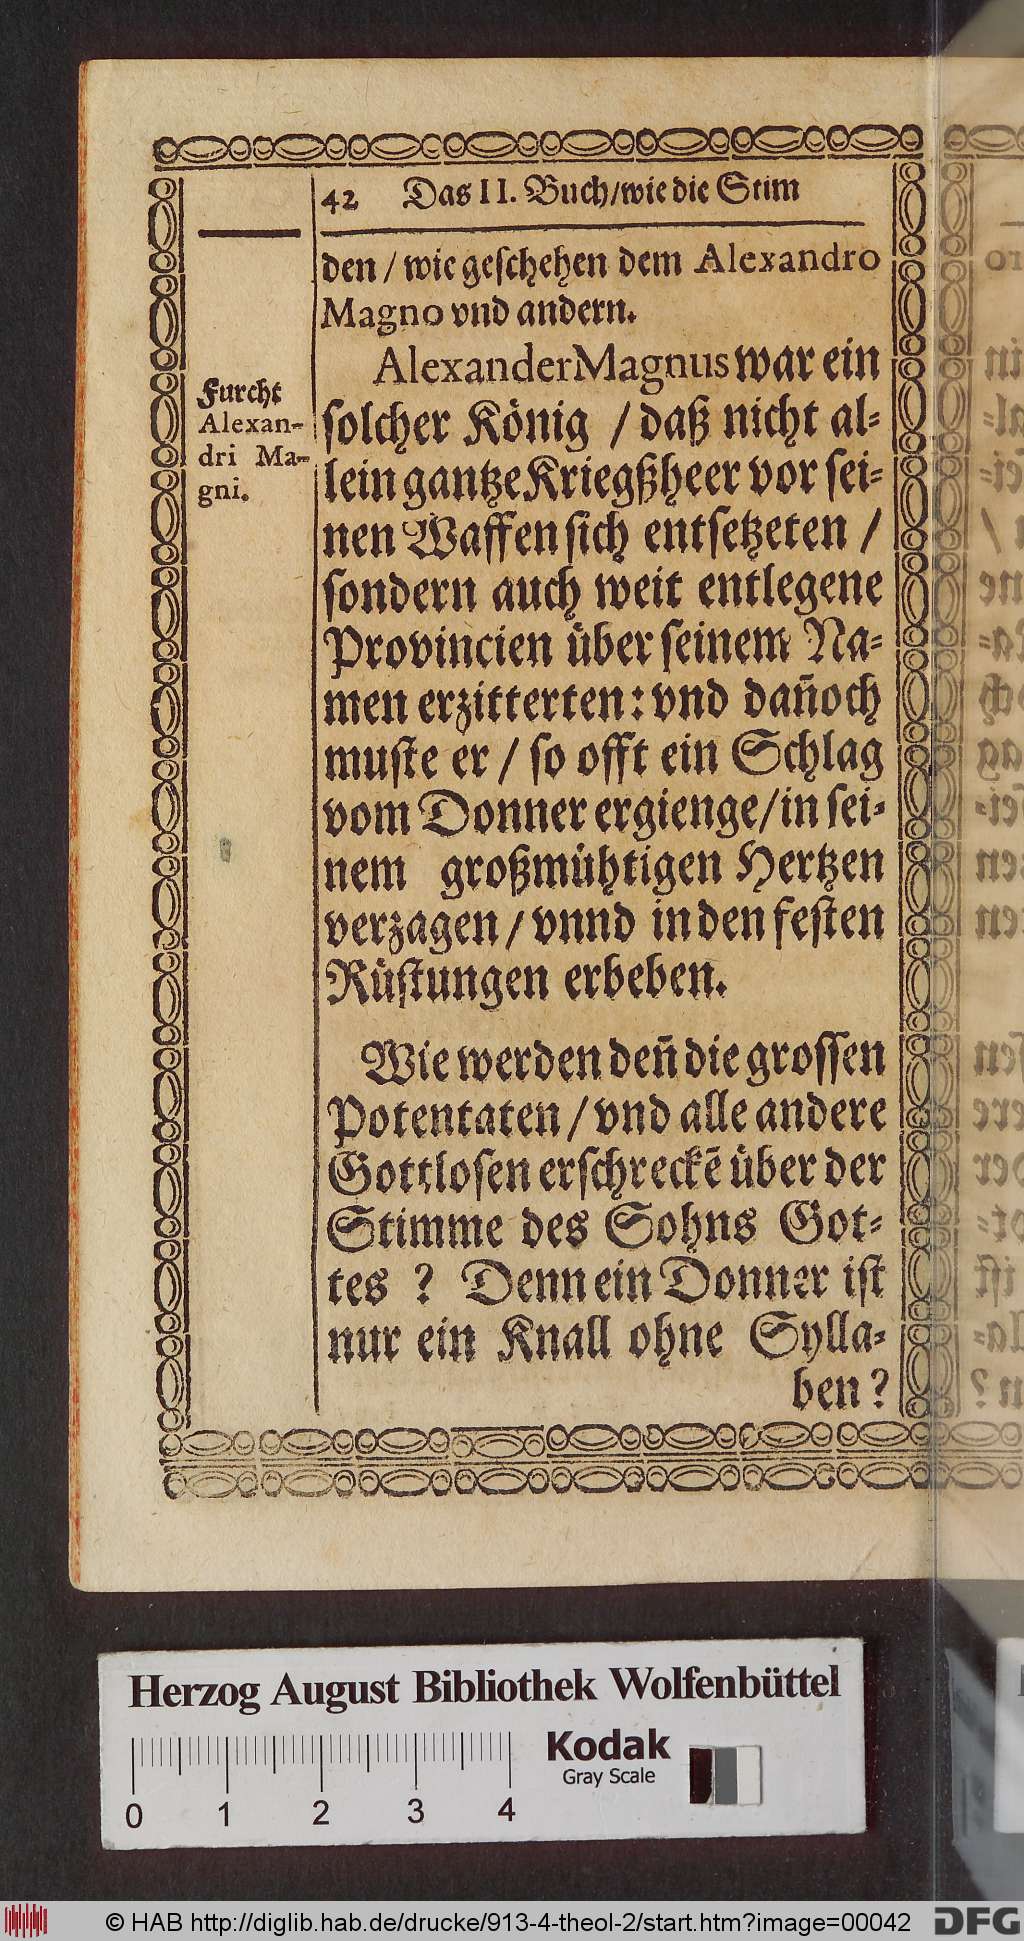 42 Das II. Buch/wie die Stim
den / wie geschehen dem Alexandro
Magno vnd andern.
Furcht
Alexan-
dri Ma-
gni.
Alexander Magnus war ein
solcher König / daß nicht al-
lein gantze Kriegßheer vor sei-
nen Waffen sich entsetzeten /
sondern auch weit entlegene
Provincien über seinem Na-
men erzitterten: vnd dañoch
muste er / so offt ein Schlag
vom Donner ergienge/in sei-
nem großmühtigen Hertzen
verzagen / vnnd in den festen
Rüstungen erbeben.
Wie werden deñ die grossen
Potentaten / vnd alle andere
Gottlosen erschreckẽ über der
Stimme des Sohns Got-
tes ? Denn ein Donner ist
nur ein Knall ohne Sylla-
ben ?
Herzog August Bibliothek Wolfenbüttel
Kodak
Gray Scale
0 1 2 3 4
© HAB http://diglib.hab.de/drucke/913-4-theol-2/start.htm?image=00042
DFG